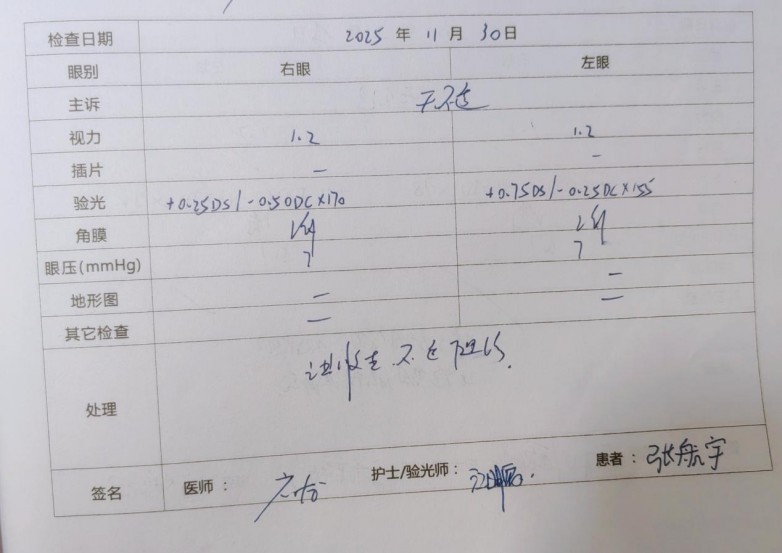 检查日期 2025 年 11 月 30日
眼别 右眼 左眼
主诉 无不适
视力 1.2 1.2
插片 — —
验光 +0.25DS/-0.50DC×170 +0.75DS/-0.25DC×155
角膜
眼压(mmHg) 7 7
地形图 — —
其它检查 — —
处理
签名 医师： 护士/验光师： 患者：张航宇